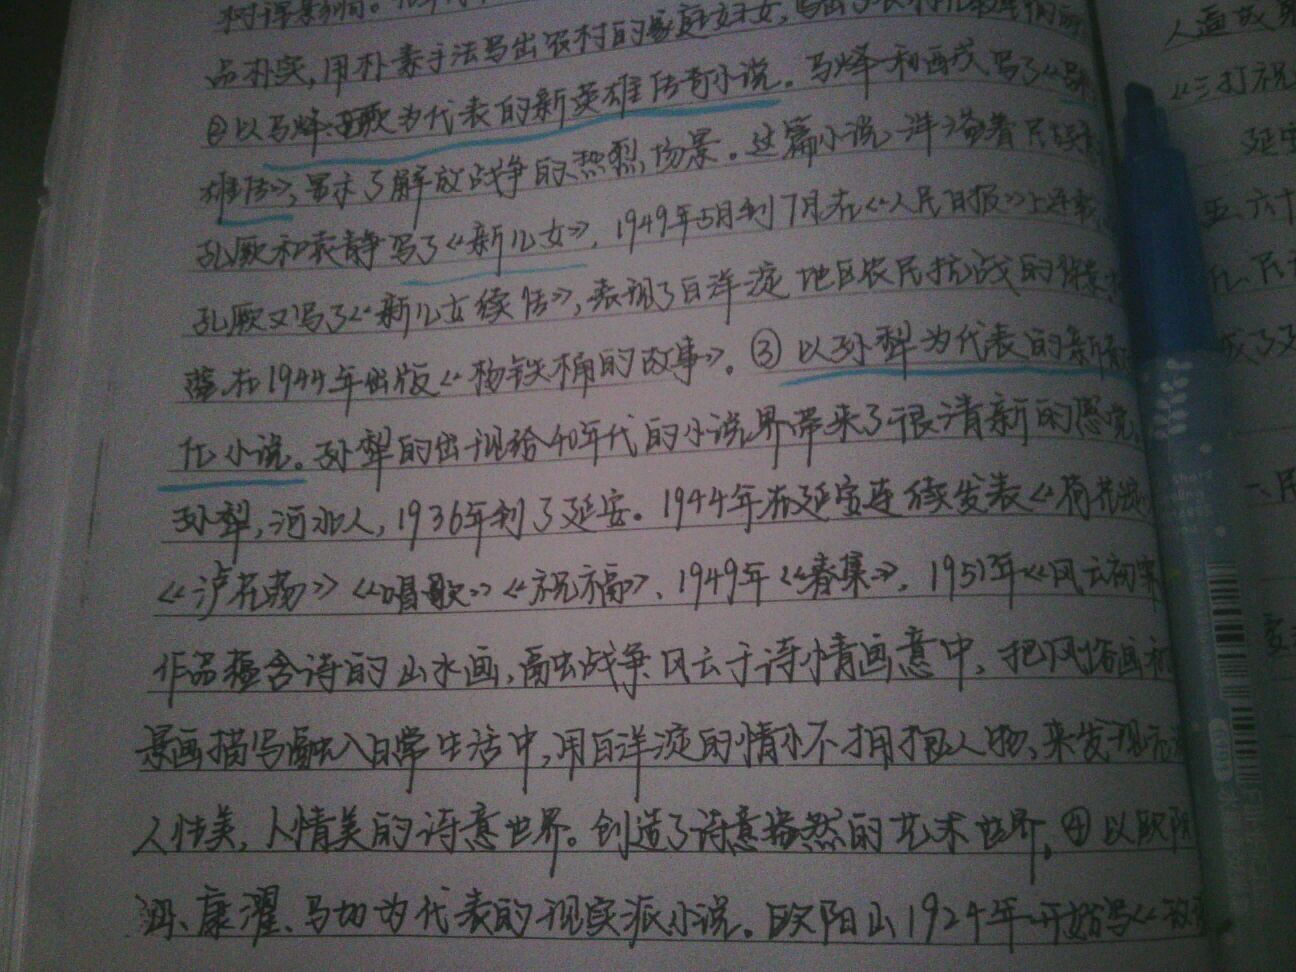 品朴实,用朴素手法写出农村的家庭妇女,写出了农村
②以马烽、西戎为代表的新英雄传奇小说。马烽和西戎写了《吕梁
雄传》,显示了解放战争的热烈场景。这篇小说洋溢着民族
孔厥和袁静写了《新儿女》,1949年5月到7月在《人民日报》上连载
孔厥又写了《新儿女续传》,表现了白洋淀地区农民抗战的
在1944年出版《杨铁桶的故事》。③以孙犁为代表的新
化小说。孙犁的出现给40年代的小说界带来了很清新的感觉。
孙犁,河北人,1936年到了延安。1944年在延安连续发表《荷花淀
《泸花荡》《唱歌》《祝福》、1949年《春集》,1951年《风云初
作品蕴含诗的山水画,寓出战争风云于诗情画意中,把风俗画和
景画描写融入日常生活中,用白洋淀的情水不拥抱人物,来发现
人性美,人情美的诗意世界。创造了诗意盎然的艺术世界,④以欧阳
康濯、马加为代表的现实派小说。欧阳山1924年开始写《
人道
《三打祝
延安
五、六十